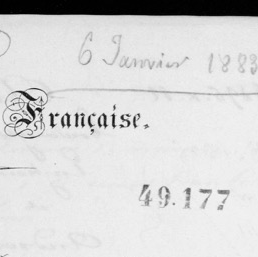 6 Janvier 1883
Française.
49.177